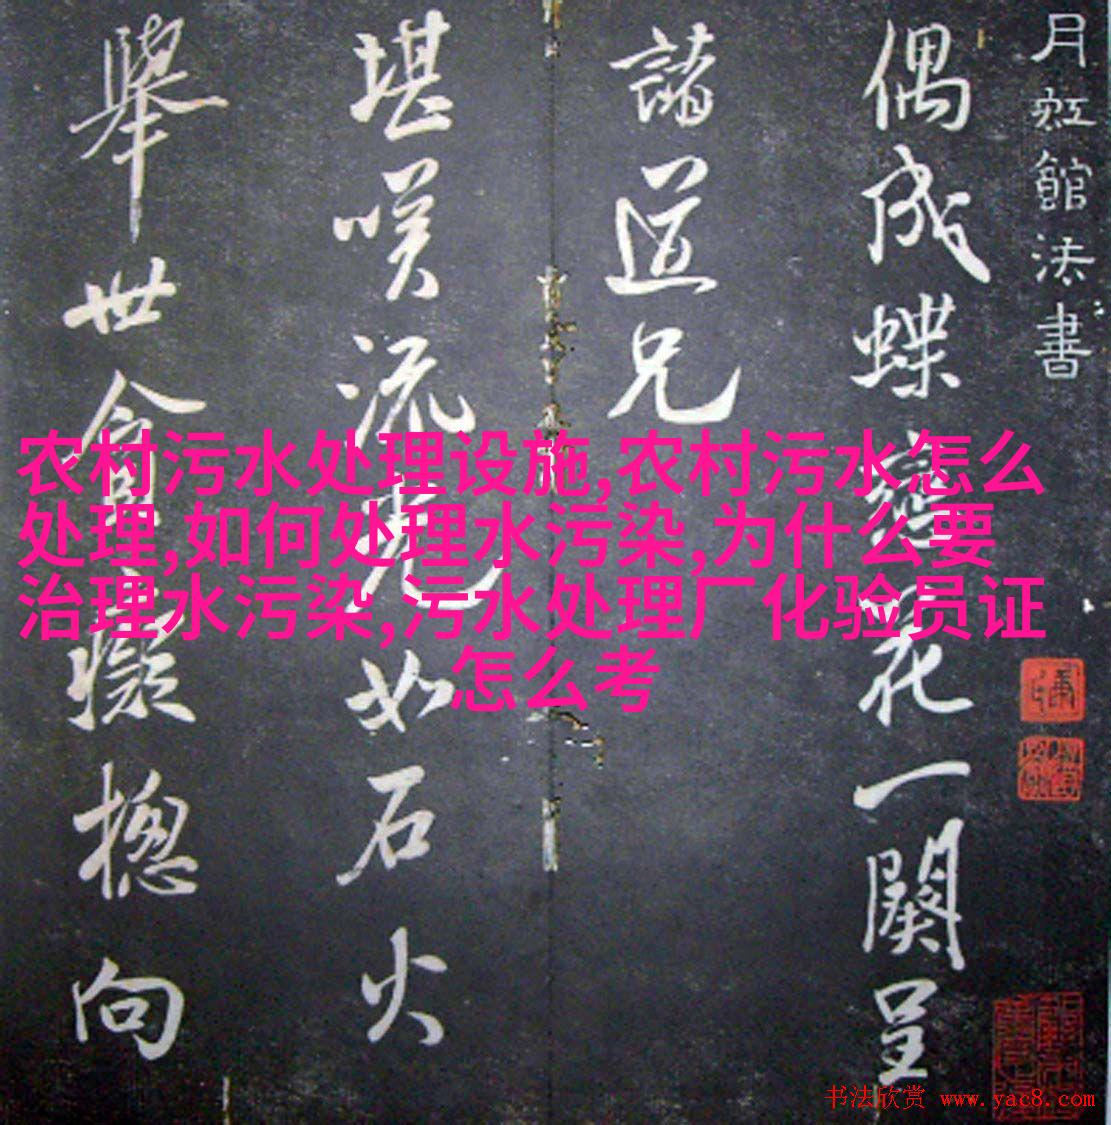 月虹館法書
偶成蝶戀花一闋呈
諸道兄
堪嘆流光如石火
舉世貪癡
向
农村污水处理设施,农村污水怎么
处理,如何处理水污染,为什么要
治理水污染,污水处理厂化验员证
怎么考
书法欣赏 www.yac8.com